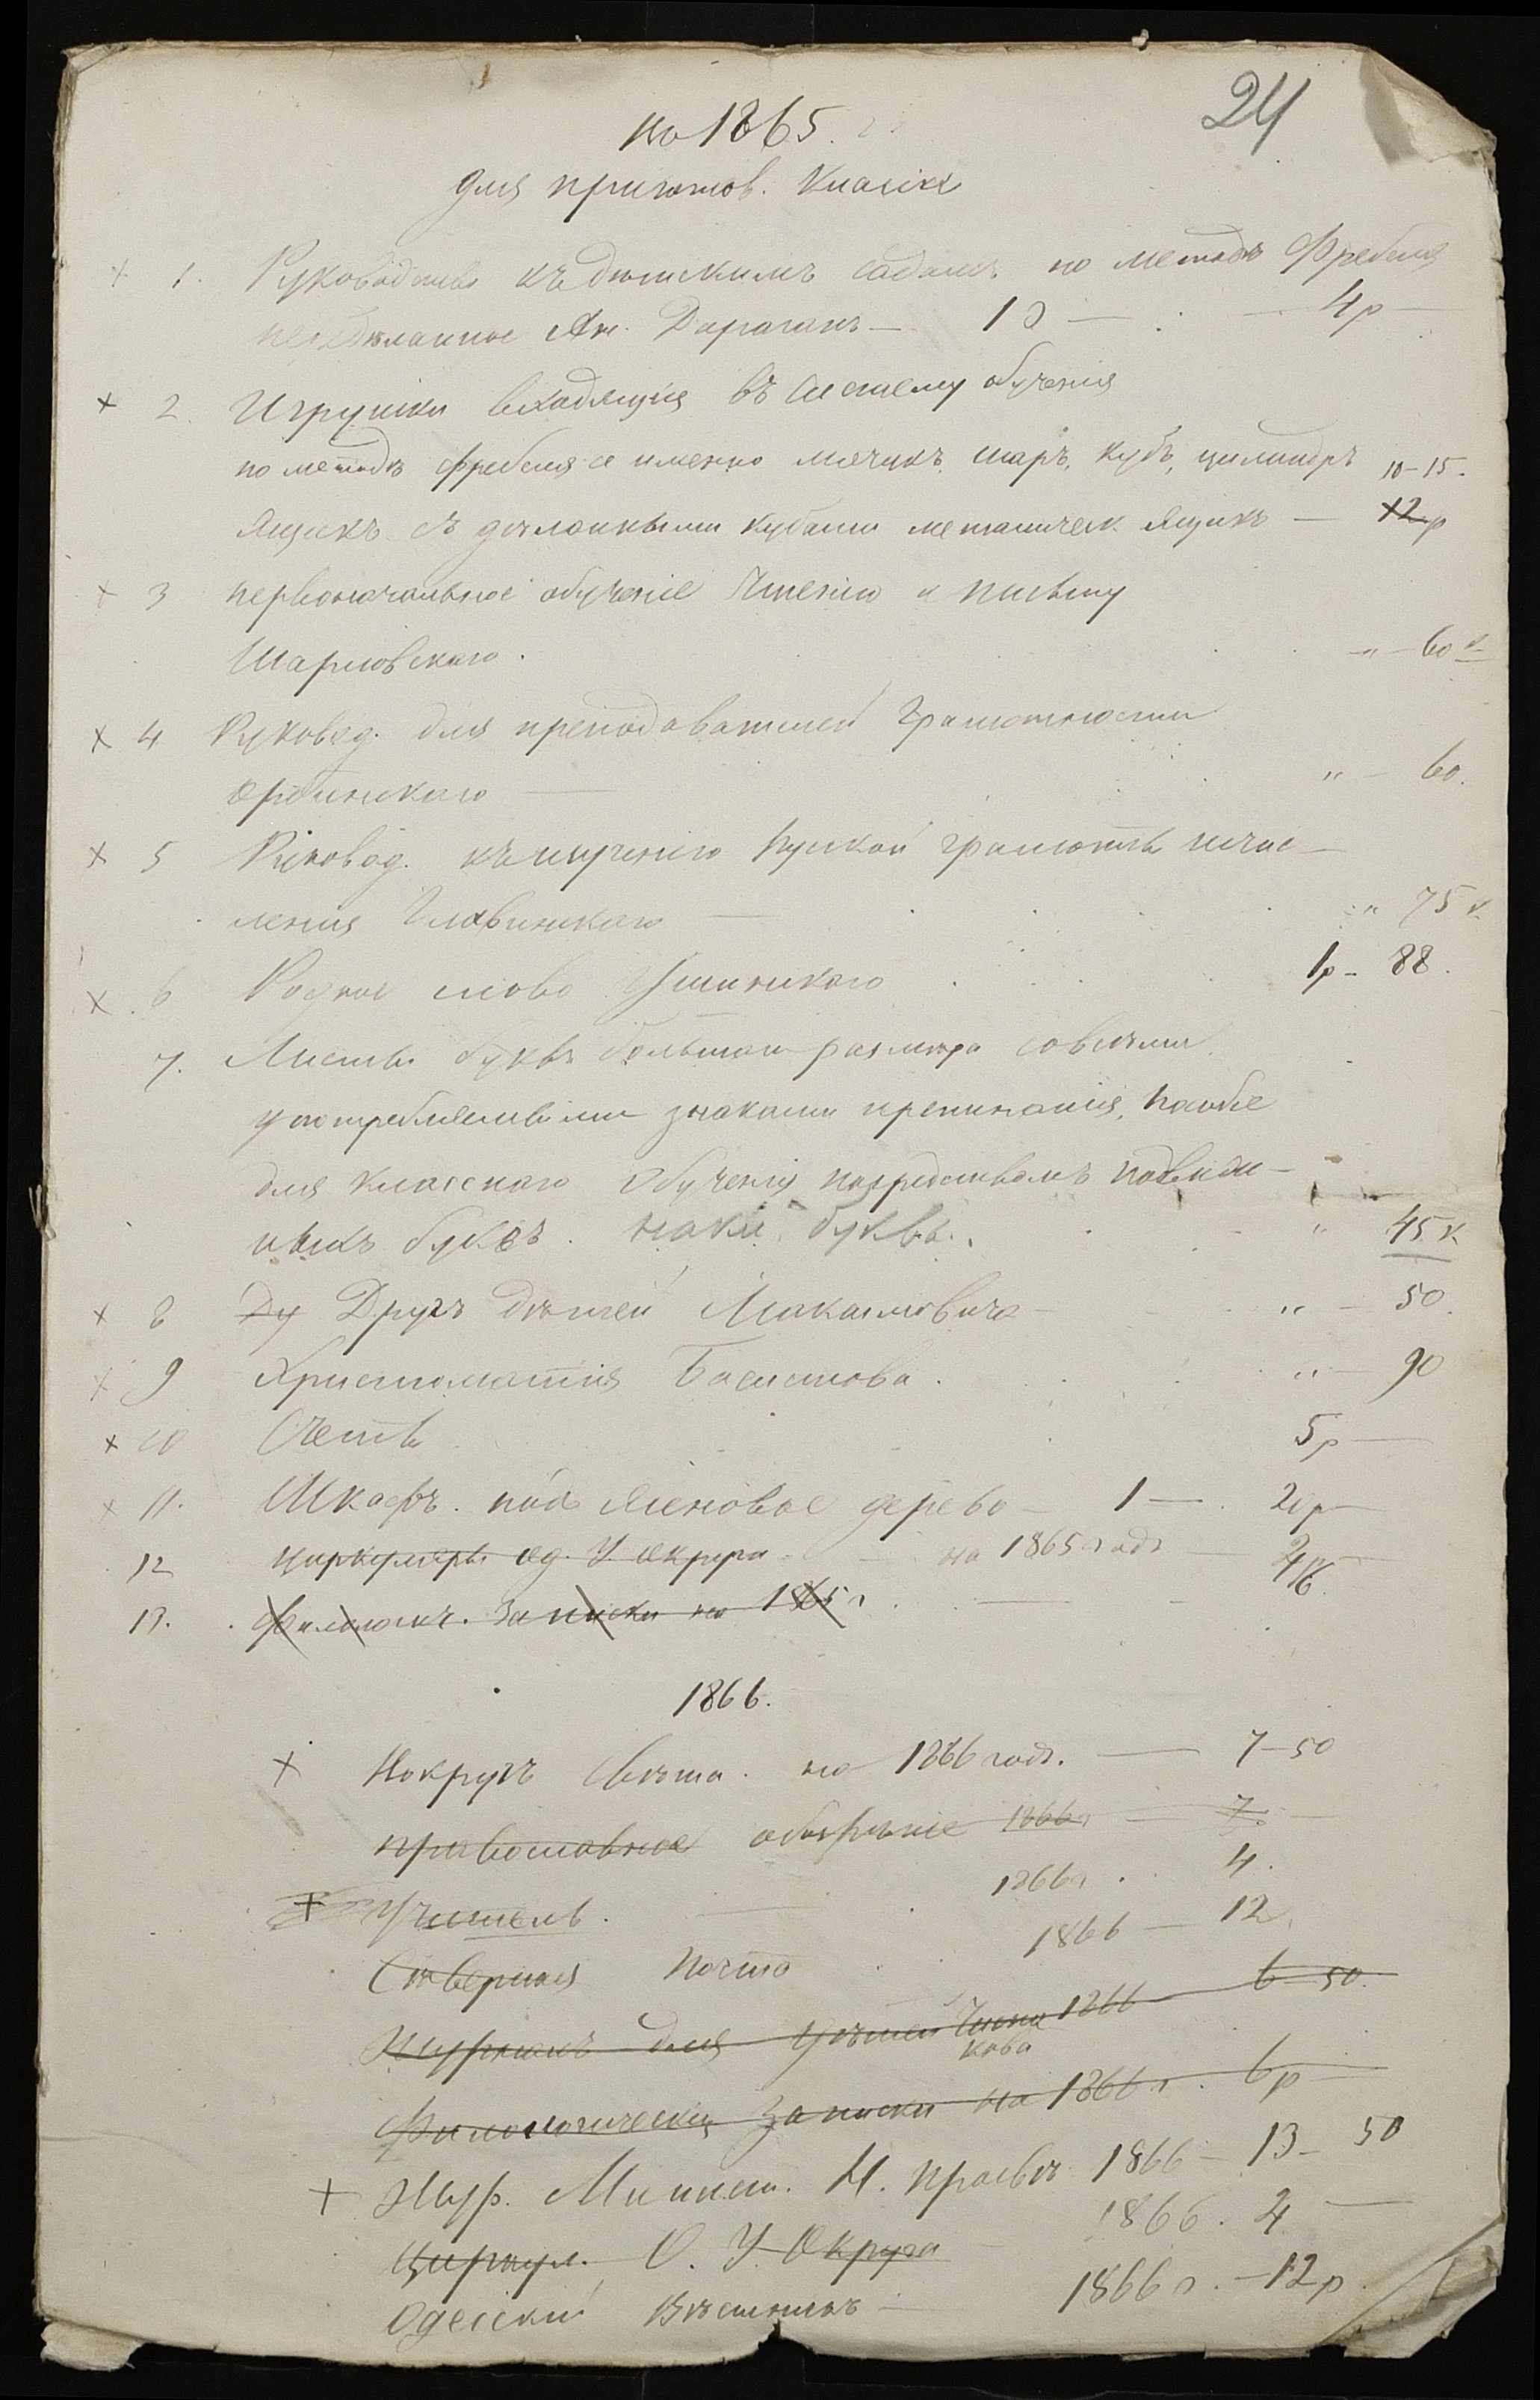 24
на 1865.
для приготов. класса
+ 1. Руководство къ дѣтскимъ садамъ по методѣ Фребеля
Ан. Дараганъ — 1 — 4р —
+ 2. Игрушки входящія въ систему обученія
по методѣ Фребеля а именно мячикъ, шаръ, кубъ, цилиндръ 10-15.
Ящикъ съ кубами ящикъ — 12р
+ 3 первоначальное обученіе чтенію и письму
Шарловскаго. " — 60 к
+ 4 Руковод. для преподавателей грамотности
Орбинскаго — " — 60.
+ 5 Руковод. къ изученію Руской грамоты исчис-
ленія Главинскаго — " 75 к
+ 6 Родное слово Ушинскаго 1р - 88.
7. Листы буквъ большаго размѣра со всѣми
употребляемыми знаками препинанія, пособіе
для класснаго обученія посредствомъ подвиж-
ныхъ буквъ. буквъ. " 45 к
+ 8 Ду Другъ дѣтей Максимовича — " — 50.
+ 9 Христоматія Басистова. " — 90
+ 10 Счеты 5р —
+ 11. Шкафъ. подъ ясеновое дерево — 1 — 20р
12 Циркуляры Од. У. Округа — на 1865 годъ —
13. Филологич. Записки на 1865 г.
1866.
+ Вокругъ свѣта. на 1866 годъ. — 7-50
православное обозрѣніе 1866г — 7.
+ Учитель. 1866г. 4.
Сѣверная почта 1866 — 12.
Журналъ для дѣтей Чистя
кова 1866 — 6-50.
Филологическія Записки на 1866 г. 6р
+ Жур. Минист. Н. просвѣ. 1866 — 13 - 50
Циркул. О. У Округа — 1866. 2 —
Одесскій Вѣстникъ — 1866 г. — 12р.